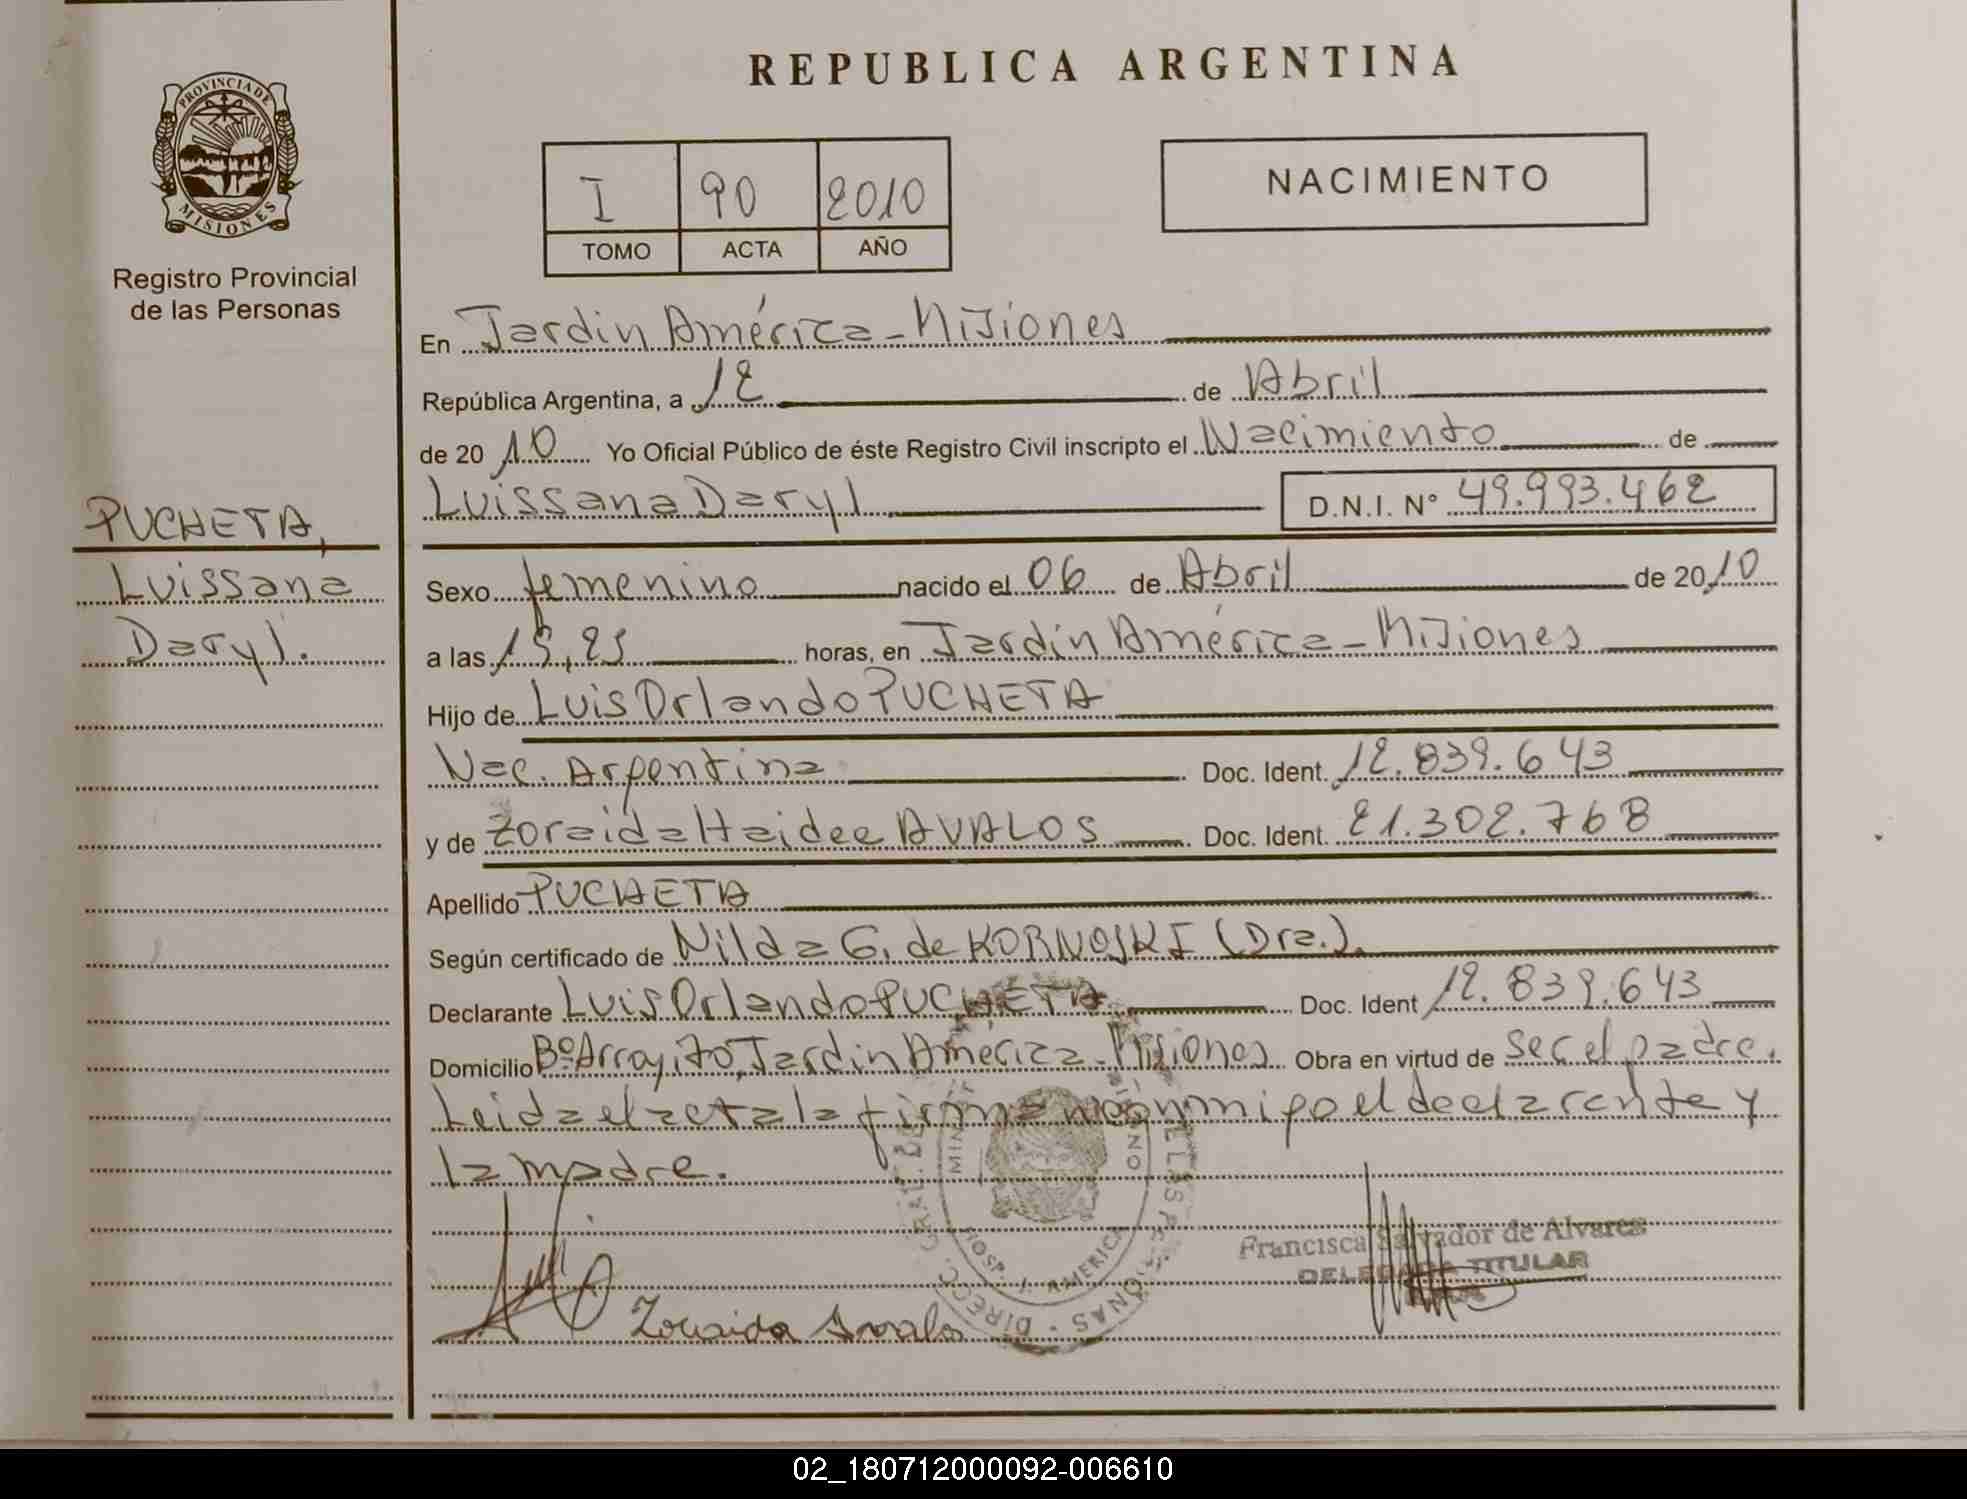 REPUBLICA ARGENTINA
PROVINCIA DE
MISIONES
Registro Provincial
de las Personas
I 90 2010
TOMO ACTA AÑO
NACIMIENTO
En Jardin América - Misiones
República Argentina, a 12 de Abril
de 2010 Yo Oficial Público de éste Registro Civil inscripto el Nacimiento de
Luissana Daryl D.N.I. Nº 49.993.462
PUCHETA,
Luissana
Daryl.
Sexo femenino nacido el 06 de Abril de 2010
a las 15,25 horas, en Jardin América - Misiones
Hijo de Luis Orlando PUCHETA
Nac. Argentina Doc. Ident. 12.839.643
y de Zoraida Haidee AVALOS Doc. Ident. 21.302.768
Apellido PUCHETA
Según certificado de Nilda G. de KORNOSKI (Dra.).
Declarante Luis Orlando PUCHETA Doc. Ident 12.839.643
Domicilio Bº Arroyito, Jardin América - Misiones Obra en virtud de ser el padre.
Leida el acta la firman conmigo el declarante y
la madre.
HOSP. J. AMERICA
Francisca Salvador de Alvarez
DELEGADA TITULAR
Zoraida Avalos
02_180712000092-006610